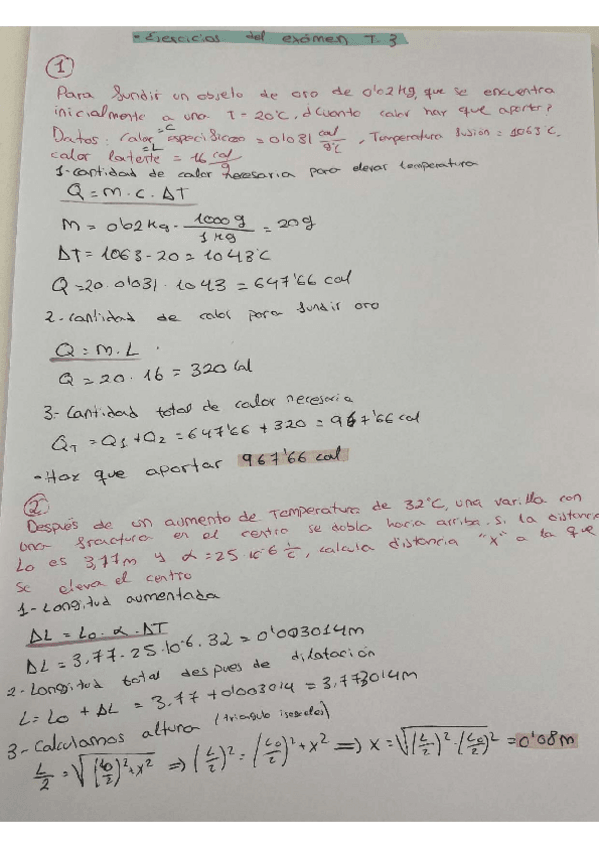 - Ejercicios del exámen T. 3
①
Para fundir un objeto de oro de 0'02 kg, que se encuentra
inicialmente a una T = 20°C, ¿Cuanto calor hay que aportar?
Datos: Calor especifico = C = 0'031 cal/g°C, Temperatura fusión = 1063°C.
calor latente = L = 16 cal/g
1- cantidad de calor necesaria para elevar temperatura
Q = m. c. ΔT
m = 0'02 kg · 1000 g / 1 kg = 20 g
ΔT = 1063 - 20 = 1043°C
Q = 20 · 0'031 · 1043 = 647'66 cal
2- cantidad de calor para fundir oro
Q = m. L .
Q = 20 · 16 = 320 cal
3- Cantidad total de calor necesaria
QT = Q1 + Q2 = 647'66 + 320 = 967'66 cal
- Hay que aportar 967'66 cal
②
Después de un aumento de temperatura de 32°C, una varilla con
una fractura en el centro se dobla hacia arriba. Si la distancia
Lo es 3,77m y α = 25 · 10-6 1/°C, calcula distancia "x" a la que
se eleva el centro
1- Longitud aumentada
ΔL = Lo · α · ΔT
ΔL = 3,77 · 25 · 10-6 · 32 = 0'003014m
2- Longitud total despues de dilatación
L = Lo + ΔL = 3,77 + 0'003014 = 3,773014m
3- Calculamos altura (triangulo isosceles)
L/2 = √(Lo/2)² + x² ⇒ (L/2)² = (Lo/2)² + x² ⇒ x = √(L/2)² - (Lo/2)² = 0'08m